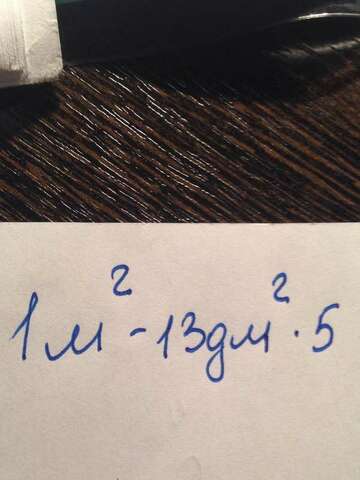 1м² - 13дм² · 5